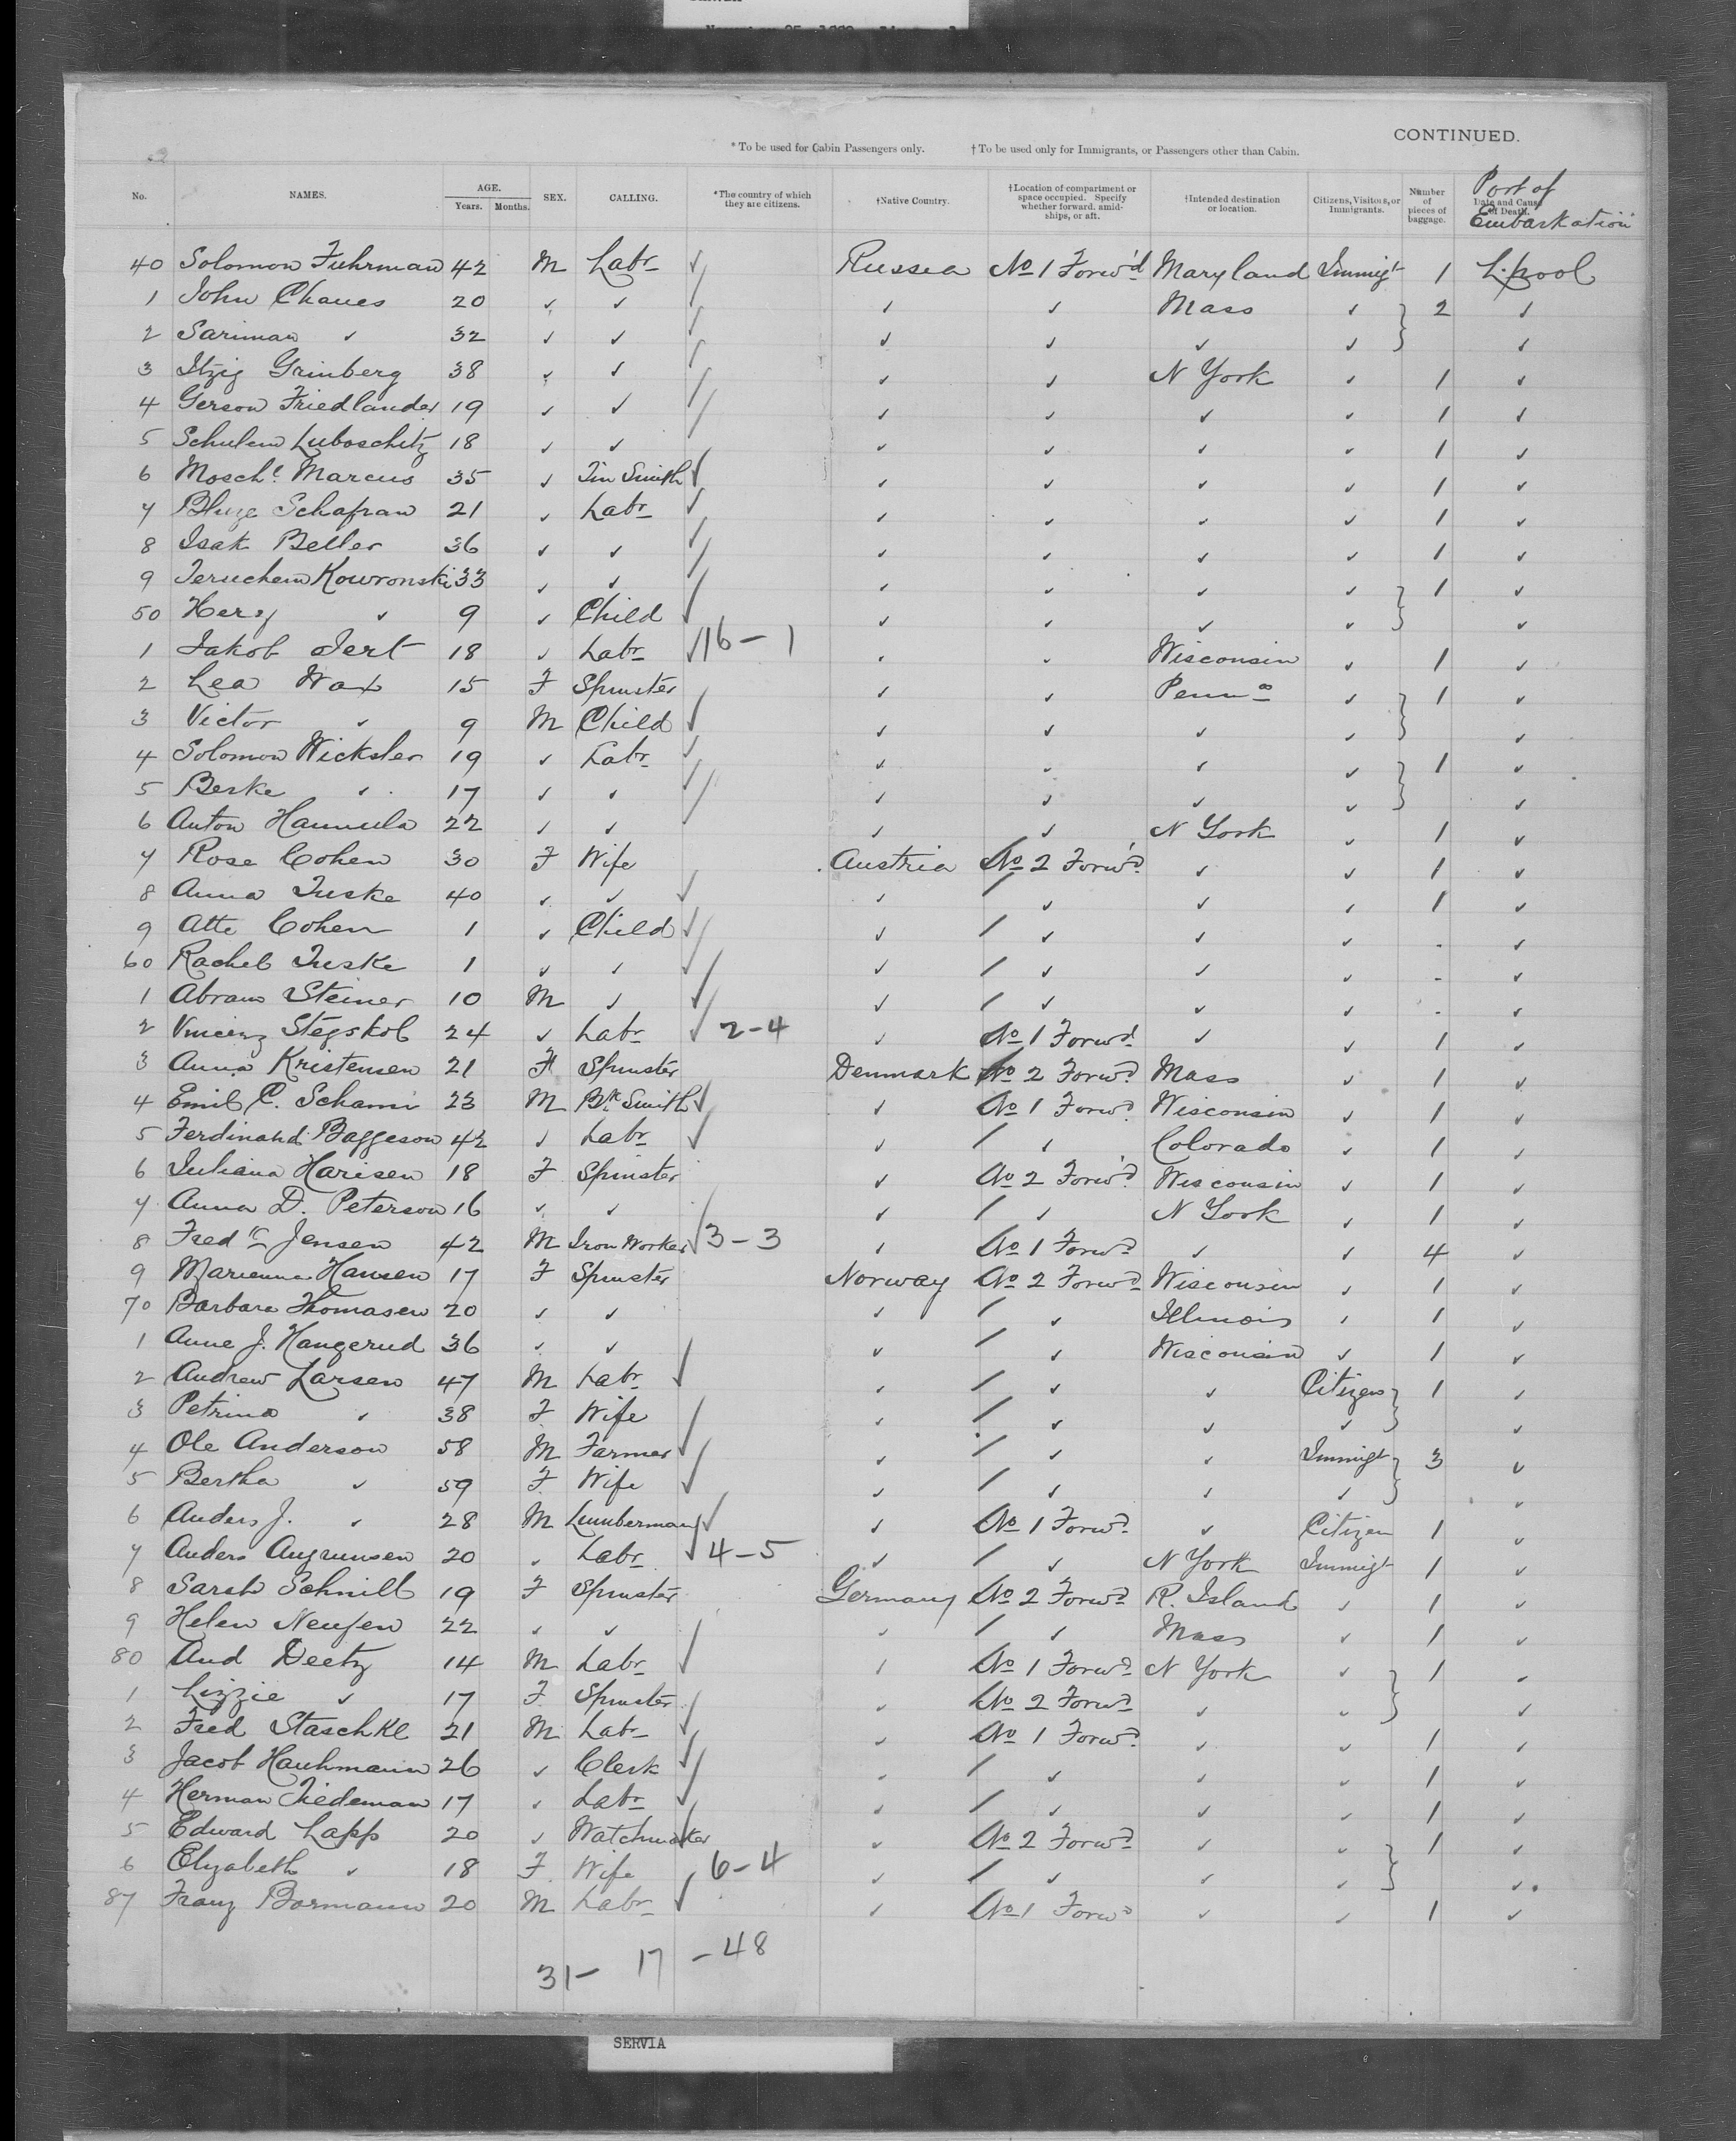 CONTINUED.
* To be used for Cabin Passengers only. † To be used only for Immigrants, or Passengers other than Cabin.
No. NAMES. AGE. Years. Months. SEX. CALLING. *The country of which they are citizens. †Native Country. †Location of compartment or space occupied. Specify whether forward, amidships, or aft. †Intended destination or location. Citizens, Visitors, or Immigrants. Number of pieces of baggage. Date and Cause of Death. Port of Embarkation
40 Solomon Fuhrman 42 M Labr ✓ Russia No 1 Forw'd Maryland Immigt 1 L.pool
1 John Chaues 20 ✓ ✓ ✓ ✓ ✓ Mass ✓ 2 ✓
2 Sariman ✓ 32 ✓ ✓ ✓ ✓ ✓ ✓ ✓ ✓
3 Itzig Grinberg 38 ✓ ✓ ✓ ✓ ✓ N York ✓ 1 ✓
4 Gerson Friedlander 19 ✓ ✓ ✓ ✓ ✓ ✓ ✓ 1 ✓
5 Schulem Luboschitz 18 ✓ ✓ ✓ ✓ ✓ ✓ ✓ 1 ✓
6 Mosche Marcus 35 ✓ Tin Smith ✓ ✓ ✓ ✓ ✓ 1 ✓
7 Schafran 21 ✓ Labr ✓ ✓ ✓ ✓ ✓ 1 ✓
8 Isak Beller 36 ✓ ✓ ✓ ✓ ✓ ✓ ✓ 1 ✓
9 Jeruchem Kowronski 33 ✓ ✓ ✓ ✓ ✓ ✓ ✓ 1 ✓
50 Herz ✓ 9 ✓ Child ✓ ✓ ✓ ✓ ✓ ✓
1 Jakob 18 ✓ Labr ✓ 16-1 ✓ ✓ Wisconsin ✓ 1 ✓
2 Lea Wax 15 F Spinster ✓ ✓ Penna ✓ 1 ✓
3 Victor ✓ 9 M Child ✓ ✓ ✓ ✓ ✓ ✓
4 Solomon Wicksler 19 ✓ Labr ✓ ✓ ✓ ✓ ✓ 1 ✓
5 Berke ✓ 17 ✓ ✓ ✓ ✓ ✓ ✓ ✓ ✓
6 Anton Hannula 22 ✓ ✓ ✓ ✓ N York ✓ 1 ✓
7 Rose Cohen 30 F Wife Austria No 2 Forw'd ✓ ✓ 1 ✓
8 Anna Tuske 40 ✓ ✓ ✓ ✓ / ✓ ✓ ✓ 1 ✓
9 Atte Cohen 1 ✓ Child ✓ ✓ / ✓ ✓ ✓ - ✓
60 Rachel Tuske 1 ✓ ✓ ✓ ✓ / ✓ ✓ ✓ - ✓
1 Abram Steiner 10 M ✓ ✓ ✓ / ✓ ✓ ✓ - ✓
2 Vincenz Stegskol 24 ✓ Labr ✓ 2-4 ✓ No 1 Forwd ✓ ✓ 1 ✓
3 Anna Kristensen 21 F Spinster Denmark No 2 Forwd Mass ✓ 1 ✓
4 Emil C. Schami 23 M Bk Smith ✓ ✓ No 1 Forwd Wisconsin ✓ 1 ✓
5 Ferdinand Baggeson 42 ✓ Labr ✓ ✓ / ✓ Colorado ✓ 1 ✓
6 Juliana Harisen 18 F Spinster ✓ No 2 Forw'd Wisconsin ✓ 1 ✓
7 Anna D. Peterson 16 ✓ ✓ ✓ / ✓ N York ✓ 1 ✓
8 Fredk Jensen 42 M Iron Worker ✓ 3-3 ✓ No 1 Forwd ✓ ✓ 4 ✓
9 Marienna Hansen 17 F Spinster Norway No 2 Forwd Wisconsin ✓ 1 ✓
70 Barbara Thomasen 20 ✓ ✓ ✓ / ✓ Illinois ✓ 1 ✓
1 Anne J. Haugerud 36 ✓ ✓ ✓ / ✓ Wisconsin ✓ 1 ✓
2 Andrew Larsen 47 M Labr ✓ ✓ / ✓ ✓ Citizens 1 ✓
3 Petrina ✓ 38 F Wife ✓ / ✓ ✓ ✓ ✓
4 Ole Anderson 58 M Farmer ✓ ✓ / ✓ ✓ Immigt 3 ✓
5 Bertha ✓ 59 F Wife ✓ ✓ / ✓ ✓ ✓ ✓
6 Anders J. ✓ 28 M Lumberman ✓ ✓ No 1 Forwd ✓ Citizen 1 ✓
7 Anders 20 ✓ Labr ✓ 4-5 ✓ / ✓ N York Immigt 1 ✓
8 Sarah Schnill 19 F Spinster Germany No 2 Forwd R. Island ✓ 1 ✓
9 Helen 22 ✓ ✓ ✓ / ✓ Mass ✓ 1 ✓
80 And Deetz 14 M Labr ✓ ✓ No 1 Forwd N York ✓ 1 ✓
1 Lizzie ✓ 17 F Spinster ✓ No 2 Forwd ✓ ✓ ✓
2 Fred Staschke 21 M Labr ✓ ✓ No 1 Forwd ✓ ✓ 1 ✓
3 Jacob Hauhmann 26 ✓ Clerk ✓ ✓ / ✓ ✓ ✓ 1 ✓
4 Herman Tiedeman 17 ✓ Labr ✓ ✓ / ✓ ✓ ✓ 1 ✓
5 Edward Lapp 20 ✓ Watchmaker ✓ ✓ No 2 Forwd ✓ ✓ 1 ✓
6 Elizabeth ✓ 18 F Wife 6-4 ✓ / ✓ ✓ ✓ ✓
87 Franz Bormann 20 M Labr ✓ ✓ No 1 Forwd ✓ ✓ 1 ✓
31- 17 -48
SERVIA